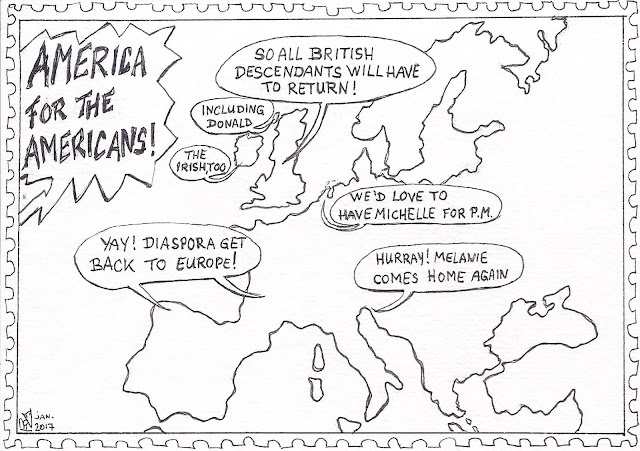 AMERICA
FOR THE
AMERICANS!
SO ALL BRITISH
DESCENDANTS WILL HAVE
TO RETURN!
INCLUDING
DONALD
THE
IRISH,TOO
WE'D LOVE TO
HAVE MICHELLE FOR P.M.
YAY! DIASPORA GET
BACK TO EUROPE!
HURRAY! MELANIE
COMES HOME AGAIN
JAN.
2017